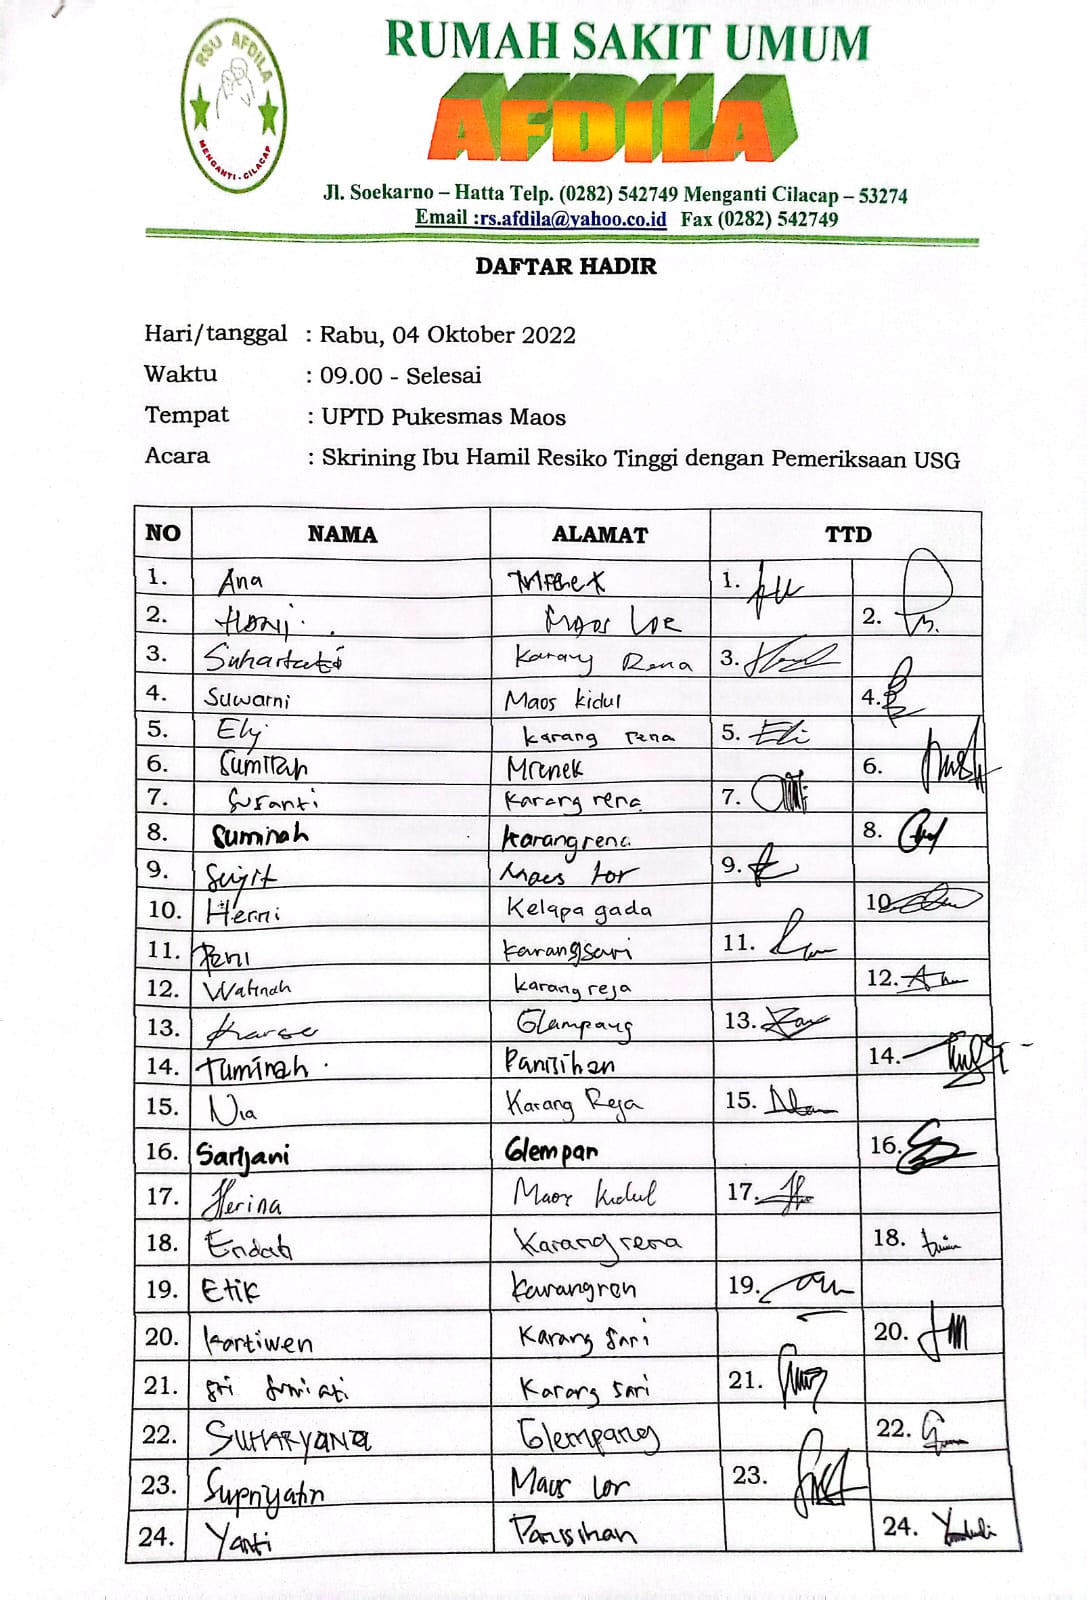 RSU AFDILA
MENGANTI - CILACAP
RUMAH SAKIT UMUM
AFDILA
Jl. Soekarno – Hatta Telp. (0282) 542749 Menganti Cilacap – 53274
Email :rs.afdila@yahoo.co.id Fax (0282) 542749
DAFTAR HADIR
Hari/tanggal : Rabu, 04 Oktober 2022
Waktu : 09.00 - Selesai
Tempat : UPTD Pukesmas Maos
Acara : Skrining Ibu Hamil Resiko Tinggi dengan Pemeriksaan USG
NO NAMA ALAMAT TTD
1. Ana 1.
2. Hani Maos Lor 2.
3. Karang Rena 3.
4. Suwarni Maos kidul 4.
5. Ely karang rena 5. Eli
6. Sumirah Mrenek 6.
7. Suranti Karang rena 7.
8. Suminah Karangrena 8.
9. Maos Lor 9.
10. Herni Kelapa gada 10.
11. Peni Karangsari 11.
12. Watinah karangreja 12.
13. Glampang 13.
14. Tuminah Panisihan 14.
15. Nia Karang Reja 15.
16. Sartjani Glempan 16.
17. Herina Maos Kidul 17.
18. Endah Karangrena 18.
19. Etik Karangren 19.
20. Kartiwen Karang Sari 20.
21. Sri Karang Sari 21.
22. SUHARYANA Glempang 22.
23. Supriyatin Maos Lor 23.
24. Yanti Panisihan 24.